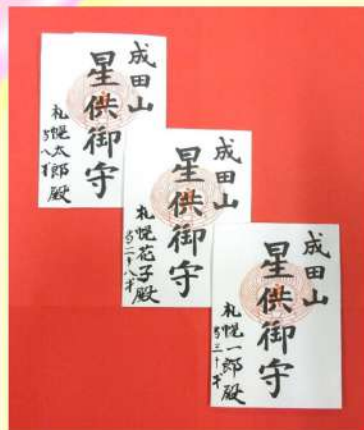 成田山
星供御守
札幌太郎殿
当八才
成田山
星供御守
札幌花子殿
当二十八才
成田山
星供御守
札幌一郎殿
当三十才